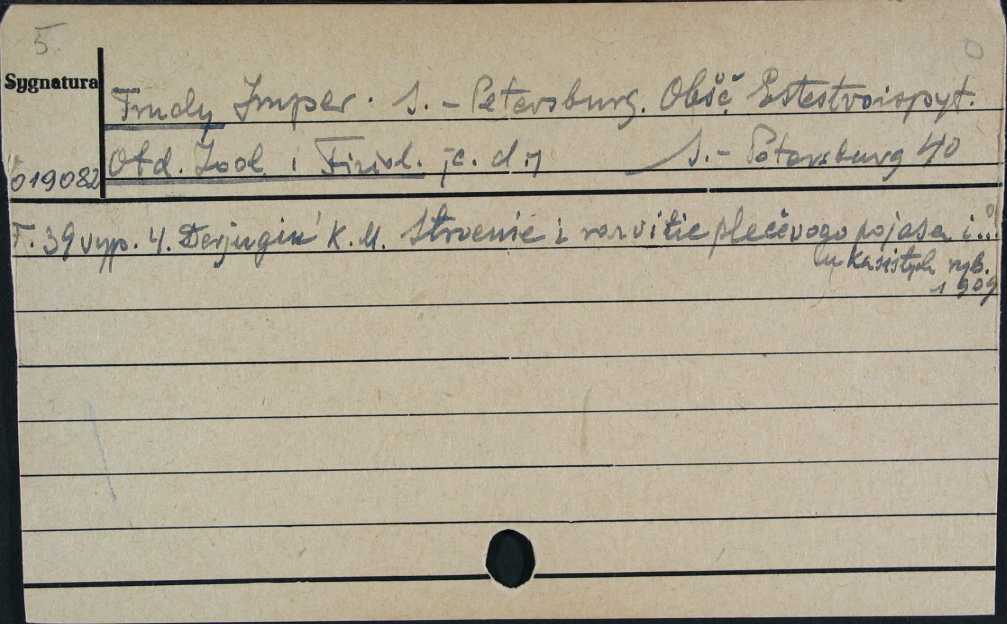 5.
Sygnatura
019082
Trudy Imper. S.-Petersburg. Obšč. Estestvoispyt.
Otd. Zool. i Fiziol. /c.d./ S.-Petersburg 40
T. 39 vyp. 4. Derjugin K. M. Stroenie i razvitie plečevogo pojasa i...
ryb.
1909